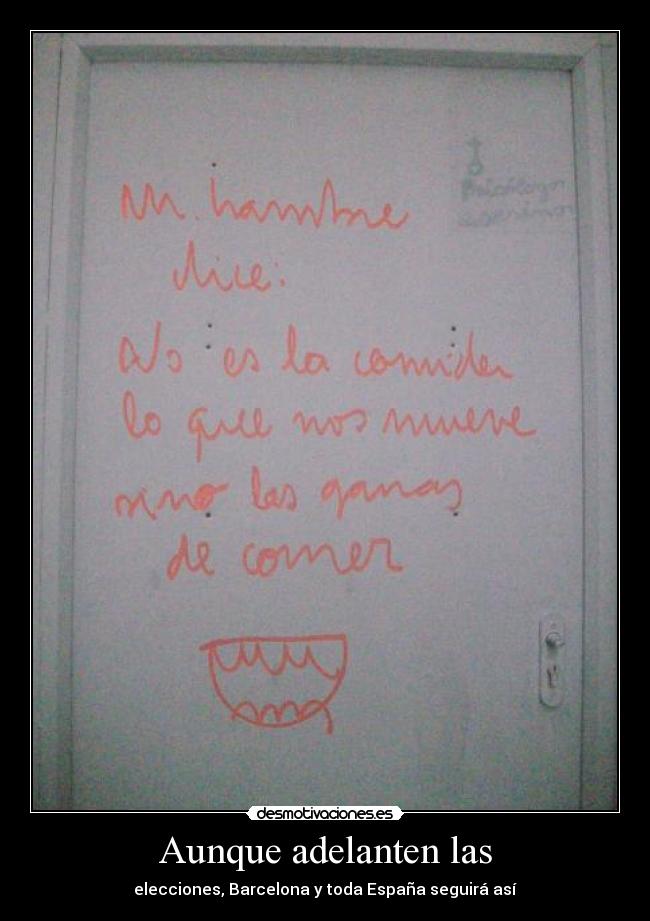 Mi hambre
dice:
No es la comida
lo que nos mueve
sino las ganas
de comer
Psicólogo
asesino
desmotivaciones.es
Aunque adelanten las
elecciones, Barcelona y toda España seguirá así